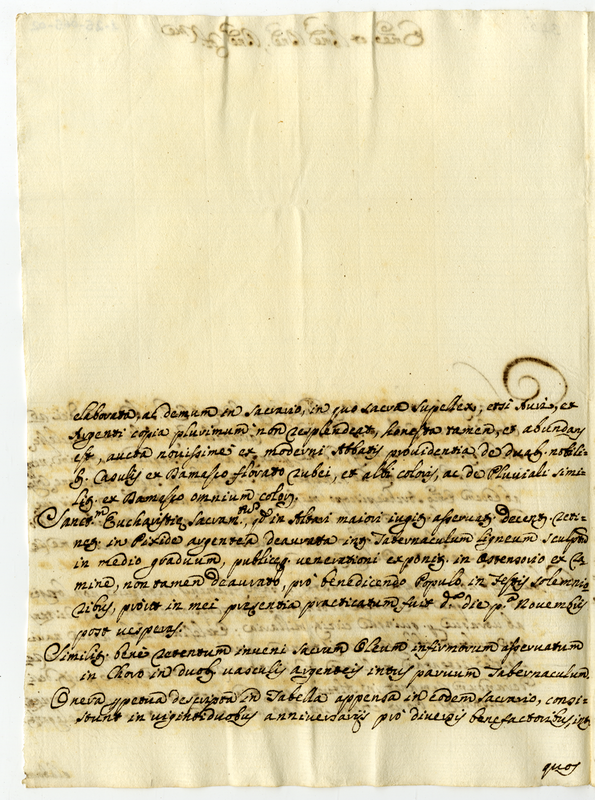 elaborata, ac demum in Sacrario, in quo sacra supellex, etsi Auri, et
Argenti copia plurimum non resplendeat, honesta tamen, et abundans
est, aucta novissime ex moderni Abbatis providentia de duab. nobili-
b. Casulis ex Damasco florato rubei, et albi coloris, ac de Pluviali simi-
liq. ex Damasco omnium colorq.
Sanctm. Eucharistie Sacram.tum, qd in Altari maiori iugiq. asservatq. decentq. reti-
netq. in Pixide argentea deaurata intq. Tabernaculum ligneum sculptum
in medio graduum, publiceq. venerationi exponitq. in Ostensorio ex
mine, non tamen deaurato, pro benedicendo Populo in festis solemnio-
ribus, prout in mei presentia practicatum fuit d.a die p.a Novembris
post vesperas.
Similiq. bene retentum inveni Sacrum Oleum infirmorum asservatum
in Choro in duob. vasculis argenteis intus parvum Tabernaculum.
Onera ppetua descripta in Tabella appensa in eodem Sacrario, consi-
stunt in vigintiduobus anniversarijs pro diversis benefactoribus, intq.
quos